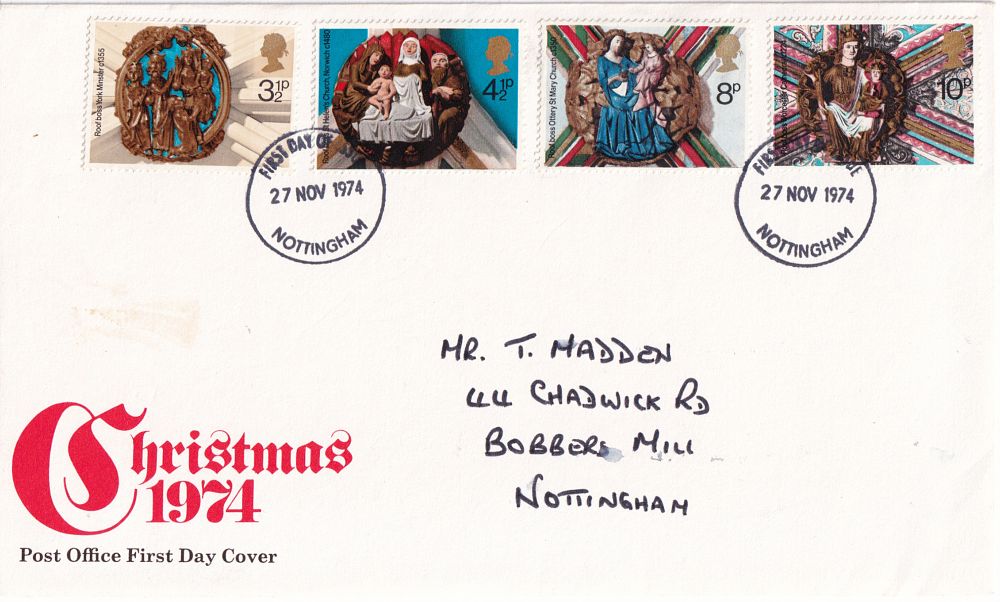 Roof boss York Minster c1355
3½p
St Helen's Church, Norwich c1480
4½p
Roof boss Ottery St Mary Church
8p
Roof boss Worcester
10p
FIRST DAY OF
27 NOV 1974
NOTTINGHAM
FIRST
27 NOV 1974
NOTTINGHAM
MR. T. MADDEN
44 CHADWICK RD
BOBBERS MILL
NOTTINGHAM
Christmas
1974
Post Office First Day Cover